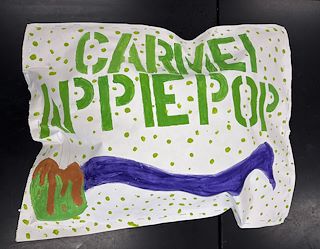 CARMEL
APPLE POP